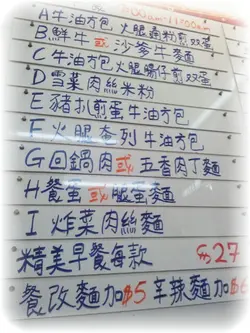 A牛油方包 火腿通粉煎双蛋
B鮮牛或沙爹牛麵
C牛油方包火腿腸仔煎双蛋
D雪菜肉絲米粉
E豬扒煎蛋牛油方包
F火腿奄列牛油方包
G回鍋肉或五香肉丁麵
H餐蛋或腿蛋麵
I炸菜肉絲麵
精美早餐每款 $27
餐改麵加$5 辛辣麵加$6